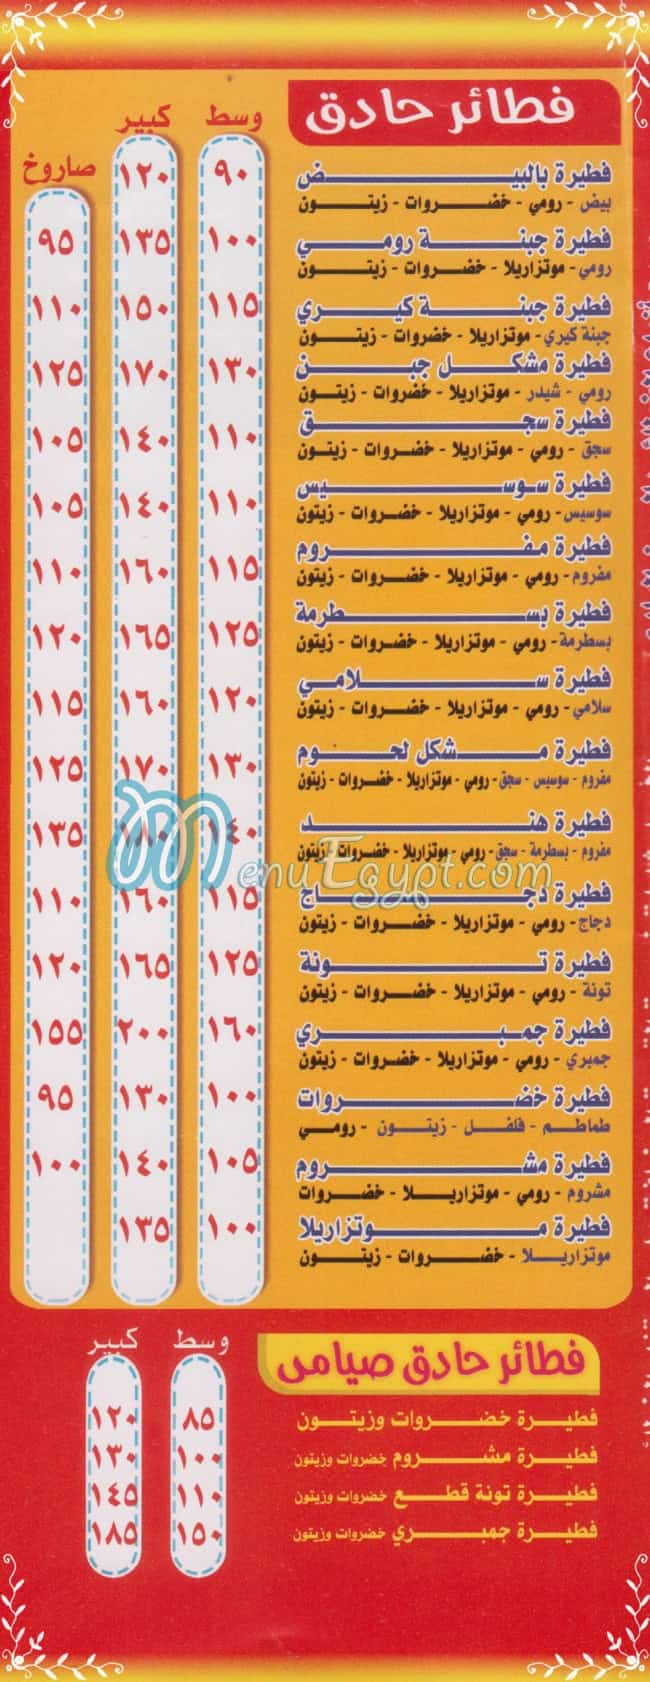 فطائر حادق
وسط كبير صاروخ
فطيرة بالبيض ٩٠ ١٢٠
بيض - رومي - خضروات - زيتون
فطيرة جبنة رومي ١٠٠ ١٣٥ ٩٥
رومي - موتزاريلا - خضروات - زيتون
فطيرة جبنة كيري ١١٥ ١٥٠ ١١٠
جبنة كيري - موتزاريلا - خضروات - زيتون
فطيرة مشكل جبن ١٣٠ ١٧٠ ١٢٥
رومي - شيدر - موتزاريلا - خضروات - زيتون
فطيرة سجق ١١٠ ١٤٠ ١٠٥
سجق - رومي - موتزاريلا - خضروات - زيتون
فطيرة سوسيس ١١٠ ١٤٠ ١٠٥
سوسيس - رومي - موتزاريلا - خضروات - زيتون
فطيرة مفروم ١١٥ ١٦٠ ١١٠
مفروم - رومي - موتزاريلا - خضروات - زيتون
فطيرة بسطرمة ١٢٥ ١٦٥ ١٢٠
بسطرمة - رومي - موتزاريلا - خضروات - زيتون
فطيرة سلامي ١٢٠ ١٦٠ ١١٥
سلامي - رومي - موتزاريلا - خضروات - زيتون
فطيرة مشكل لحوم ١٣٠ ١٧٠ ١٢٥
مفروم - سوسيس - سجق - رومي - موتزاريلا - خضروات - زيتون
فطيرة هند ١٤٠ ١٨٠ ١٣٥
مفروم - بسطرمة - سجق - رومي - موتزاريلا - خضروات - زيتون
MenuEgypt.com
فطيرة دجاج ١١٥ ١٦٠ ١١٠
دجاج - رومي - موتزاريلا - خضروات - زيتون
فطيرة تونة ١٢٥ ١٦٥ ١٢٠
تونة - رومي - موتزاريلا - خضروات - زيتون
فطيرة جمبري ١٦٠ ٢٠٠ ١٥٥
جمبري - رومي - موتزاريلا - خضروات - زيتون
فطيرة خضروات ١٠٠ ١٣٠ ٩٥
طماطم - فلفل - زيتون - رومي
فطيرة مشروم ١٠٥ ١٤٠ ١٠٠
مشروم - رومي - موتزاريلا - خضروات
فطيرة موتزاريلا ١٠٠ ١٣٥
موتزاريلا - خضروات - زيتون
فطائر حادق صيامى
وسط كبير
فطيرة خضروات وزيتون ٨٥ ١٢٠
فطيرة مشروم خضروات وزيتون ١٠٠ ١٣٠
فطيرة تونة قطع خضروات وزيتون ١١٠ ١٤٥
فطيرة جمبري خضروات وزيتون ١٥٠ ١٨٥